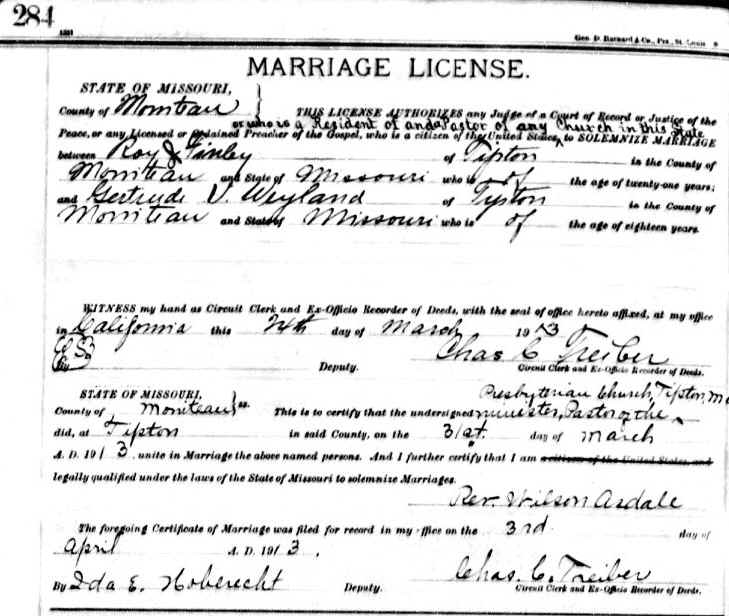 284
Geo. D. Barnard & Co., Prs., St. Louis
MARRIAGE LICENSE.
STATE OF MISSOURI,
County of Moniteau
THIS LICENSE AUTHORIZES any Judge of a Court of Record or Justice of the
or who is a Resident of and a Pastor of any Church in this State
Peace, or any Licensed or Ordained Preacher of the Gospel, who is a citizen of the United States, to SOLEMNIZE MARRIAGE
between Roy J Finley of Tipton in the County of
Moniteau and State of Missouri who is of the age of twenty-one years;
and Gertrude V. Weyland of Tipton in the County of
Moniteau and State of Missouri who is of the age of eighteen years.
WITNESS my hand as Circuit Clerk and Ex-Officio Recorder of Deeds, with the seal of office hereto affixed, at my office
in California this day of March 1913
Chas C Treiber
By Deputy. Circuit Clerk and Ex-Officio Recorder of Deeds.
Presbyterian Church, Tipton, Mo
STATE OF MISSOURI,
County of Moniteau ss. This is to certify that the undersigned minister, Pastor of the
did, at Tipton in said County, on the 31st. day of March
A. D. 1913 unite in Marriage the above named persons. And I further certify that I am a citizen of the United States, and
legally qualified under the laws of the State of Missouri to solemnize Marriages.
Rev. Wilson Asdale
The foregoing Certificate of Marriage was filed for record in my office on the 3rd day of
April A. D. 1913.
Chas. C. Treiber
By Ida E. Hoberecht Deputy. Circuit Clerk and Ex-Officio Recorder of Deeds.